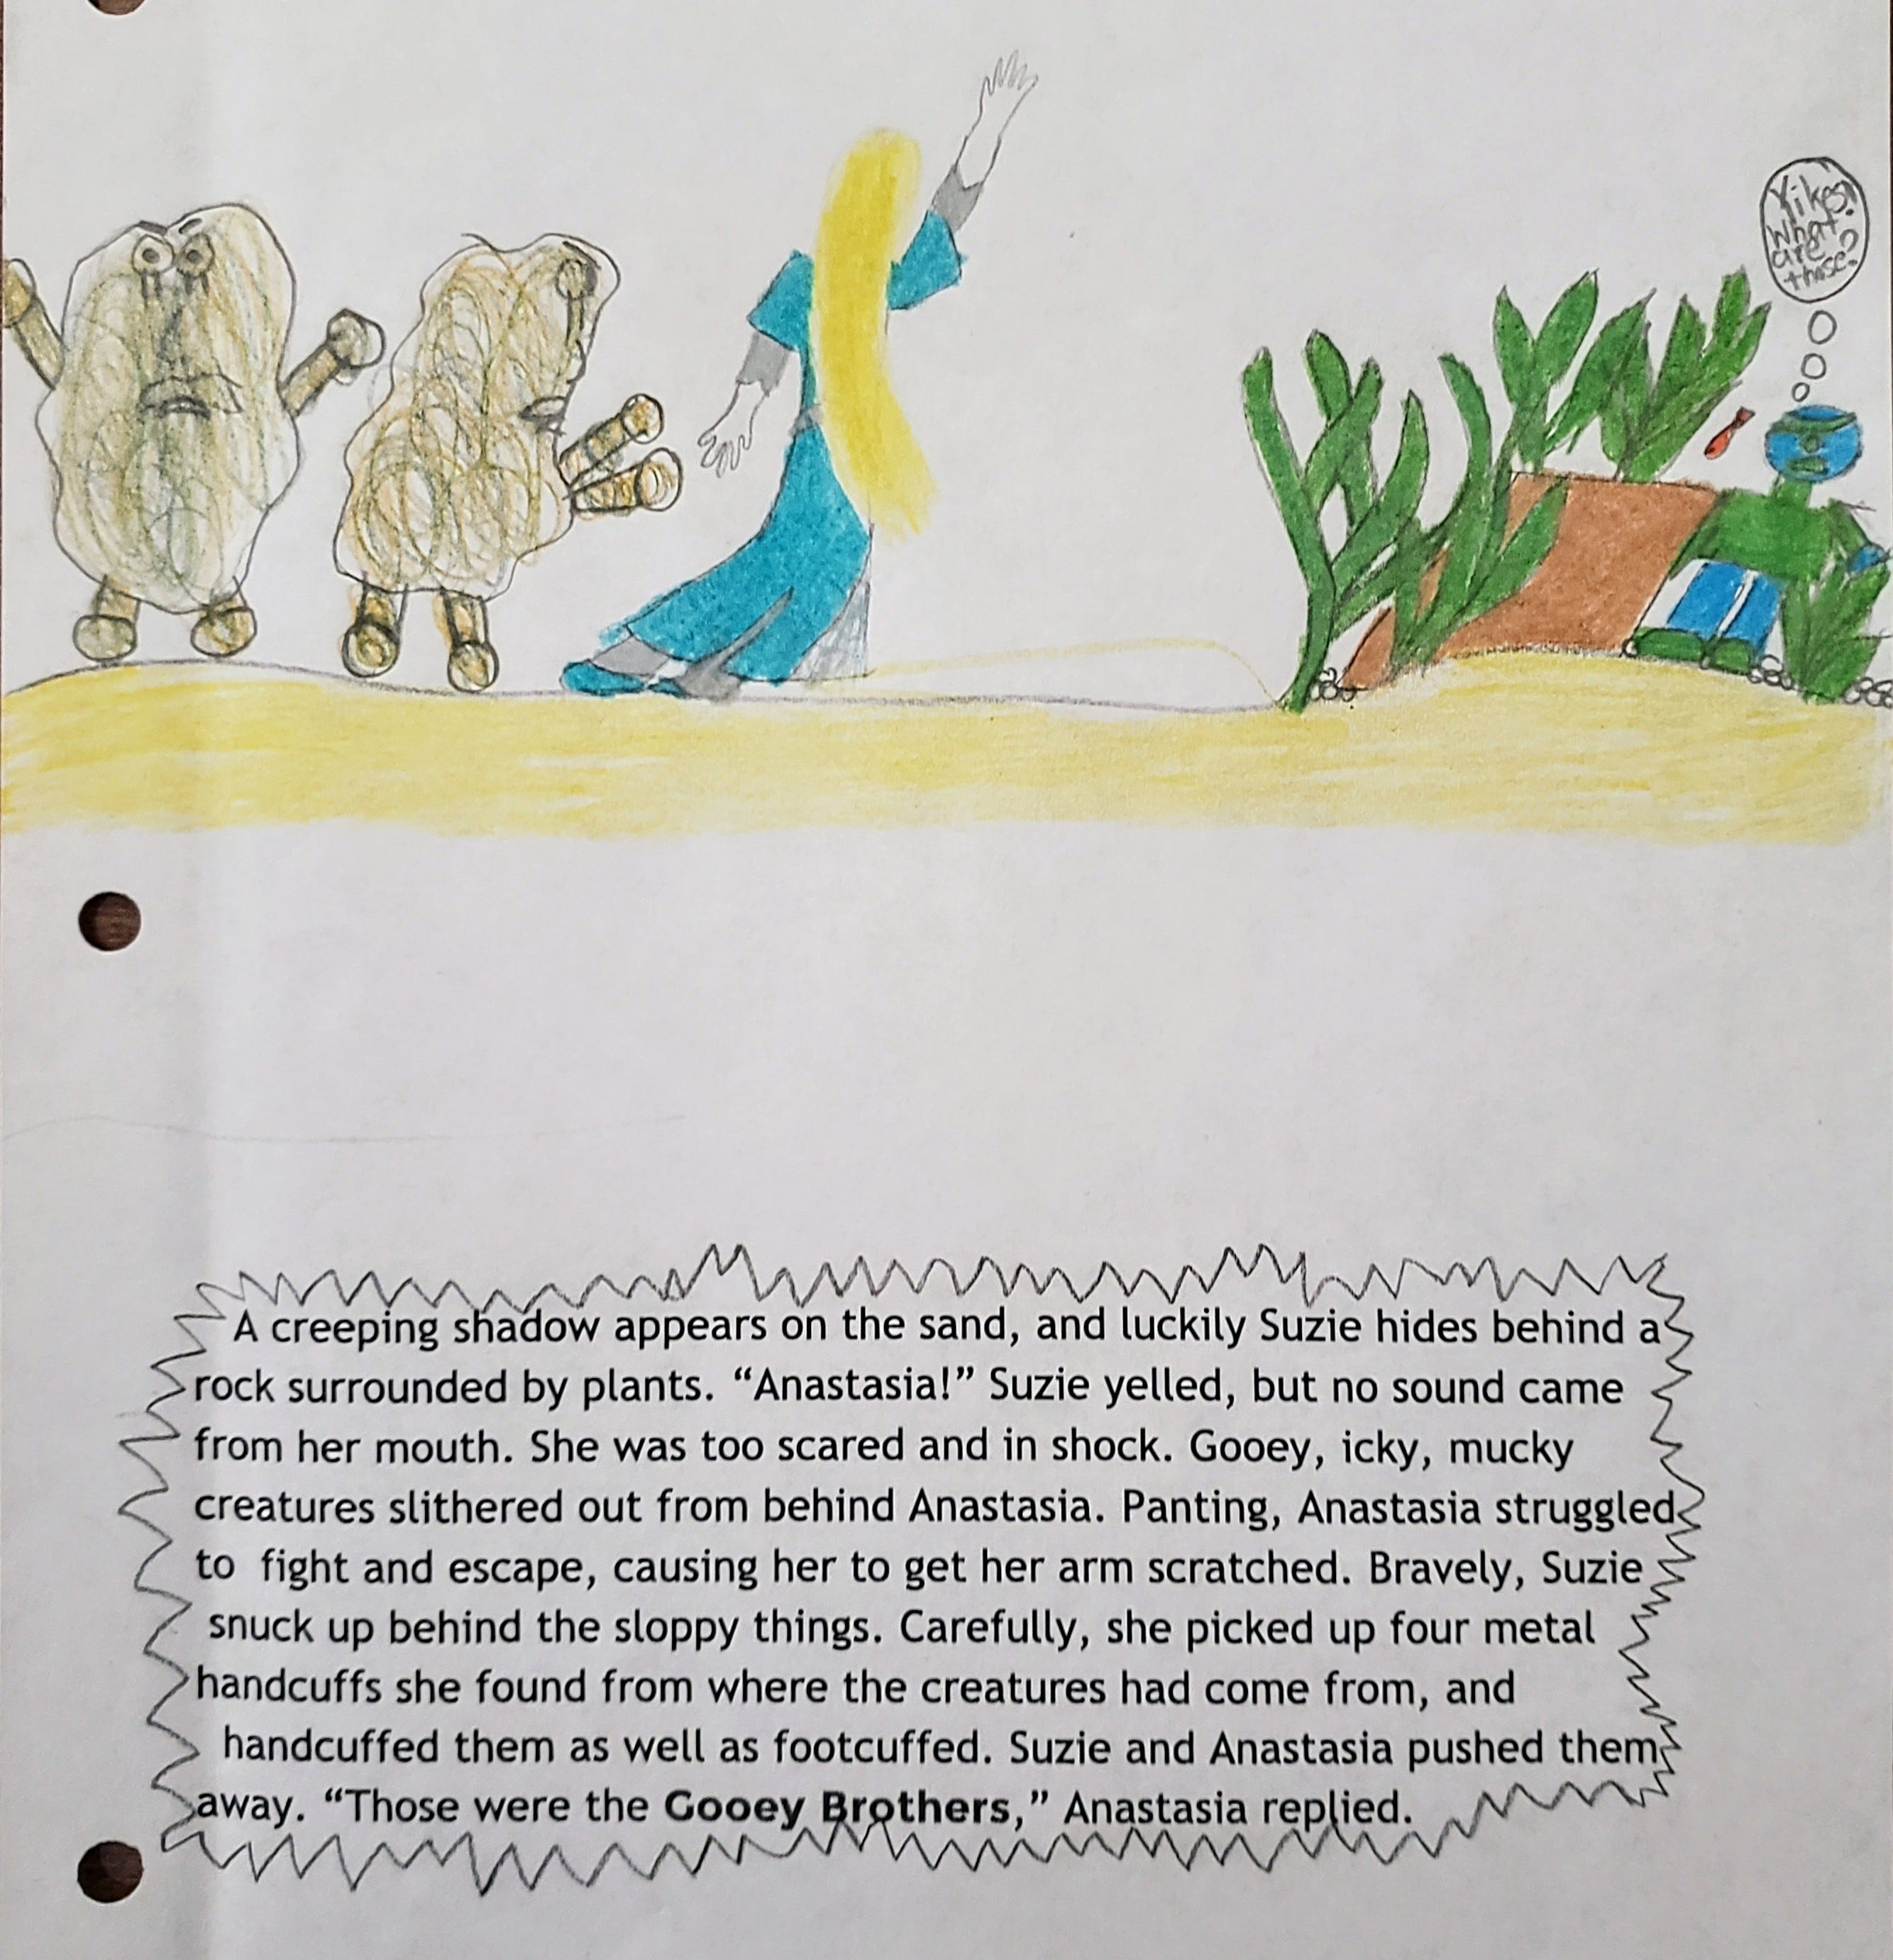 Yikes!
What
are
those?
A creeping shadow appears on the sand, and luckily Suzie hides behind a
rock surrounded by plants. “Anastasia!” Suzie yelled, but no sound came
from her mouth. She was too scared and in shock. Gooey, icky, mucky
creatures slithered out from behind Anastasia. Panting, Anastasia struggled
to fight and escape, causing her to get her arm scratched. Bravely, Suzie
snuck up behind the sloppy things. Carefully, she picked up four metal
handcuffs she found from where the creatures had come from, and
handcuffed them as well as footcuffed. Suzie and Anastasia pushed them
away. “Those were the Gooey Brothers,” Anastasia replied.